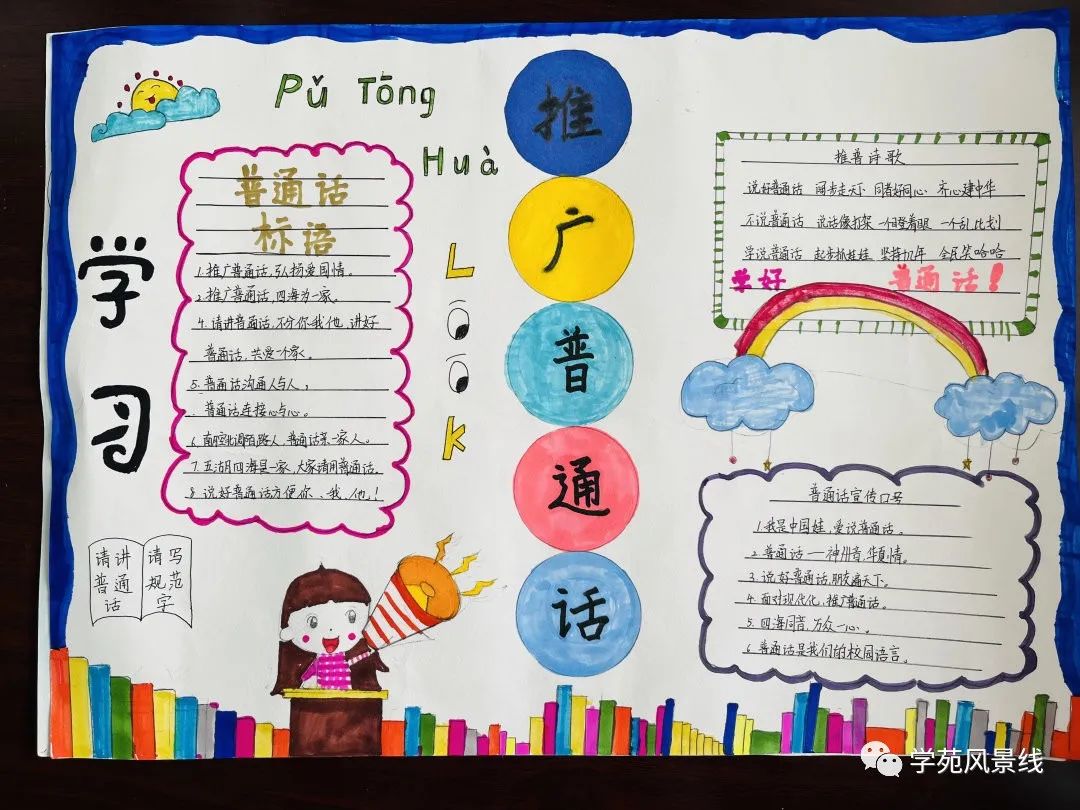 Pǔ Tōng
Huà
推
广
普
通
话
学
习
普通话
标语
1.推广普通话,弘扬爱国情。
2.推广普通话,四海为一家。
4.请讲普通话,不分你我他,讲好
普通话,共爱一个家。
5.普通话沟通人与人,
普通话连接心与心。
6.南腔北调陌路人,普通话亲一家人。
7.五湖四海是一家,大家请用普通话。
8.说好普通话方便你、我、他!
L
k
推普诗歌
说好普通话 阔步走天下 同音好同心 齐心建中华
不说普通话 说话像打架 一个瞪着眼 一个乱比划
学说普通话 起步抓娃娃 坚持九年 全民笑哈哈
学好 普通话!
普通话宣传口号
1.我是中国娃,爱说普通话。
2.普通话——神州音,华夏情。
3.说好普通话,朋友遍天下。
4.面对现代化,推广普通话。
5.四海同音,万众一心。
6.普通话是我们的校园语言。
请讲
普通
话
请写
规范
字
学苑风景线